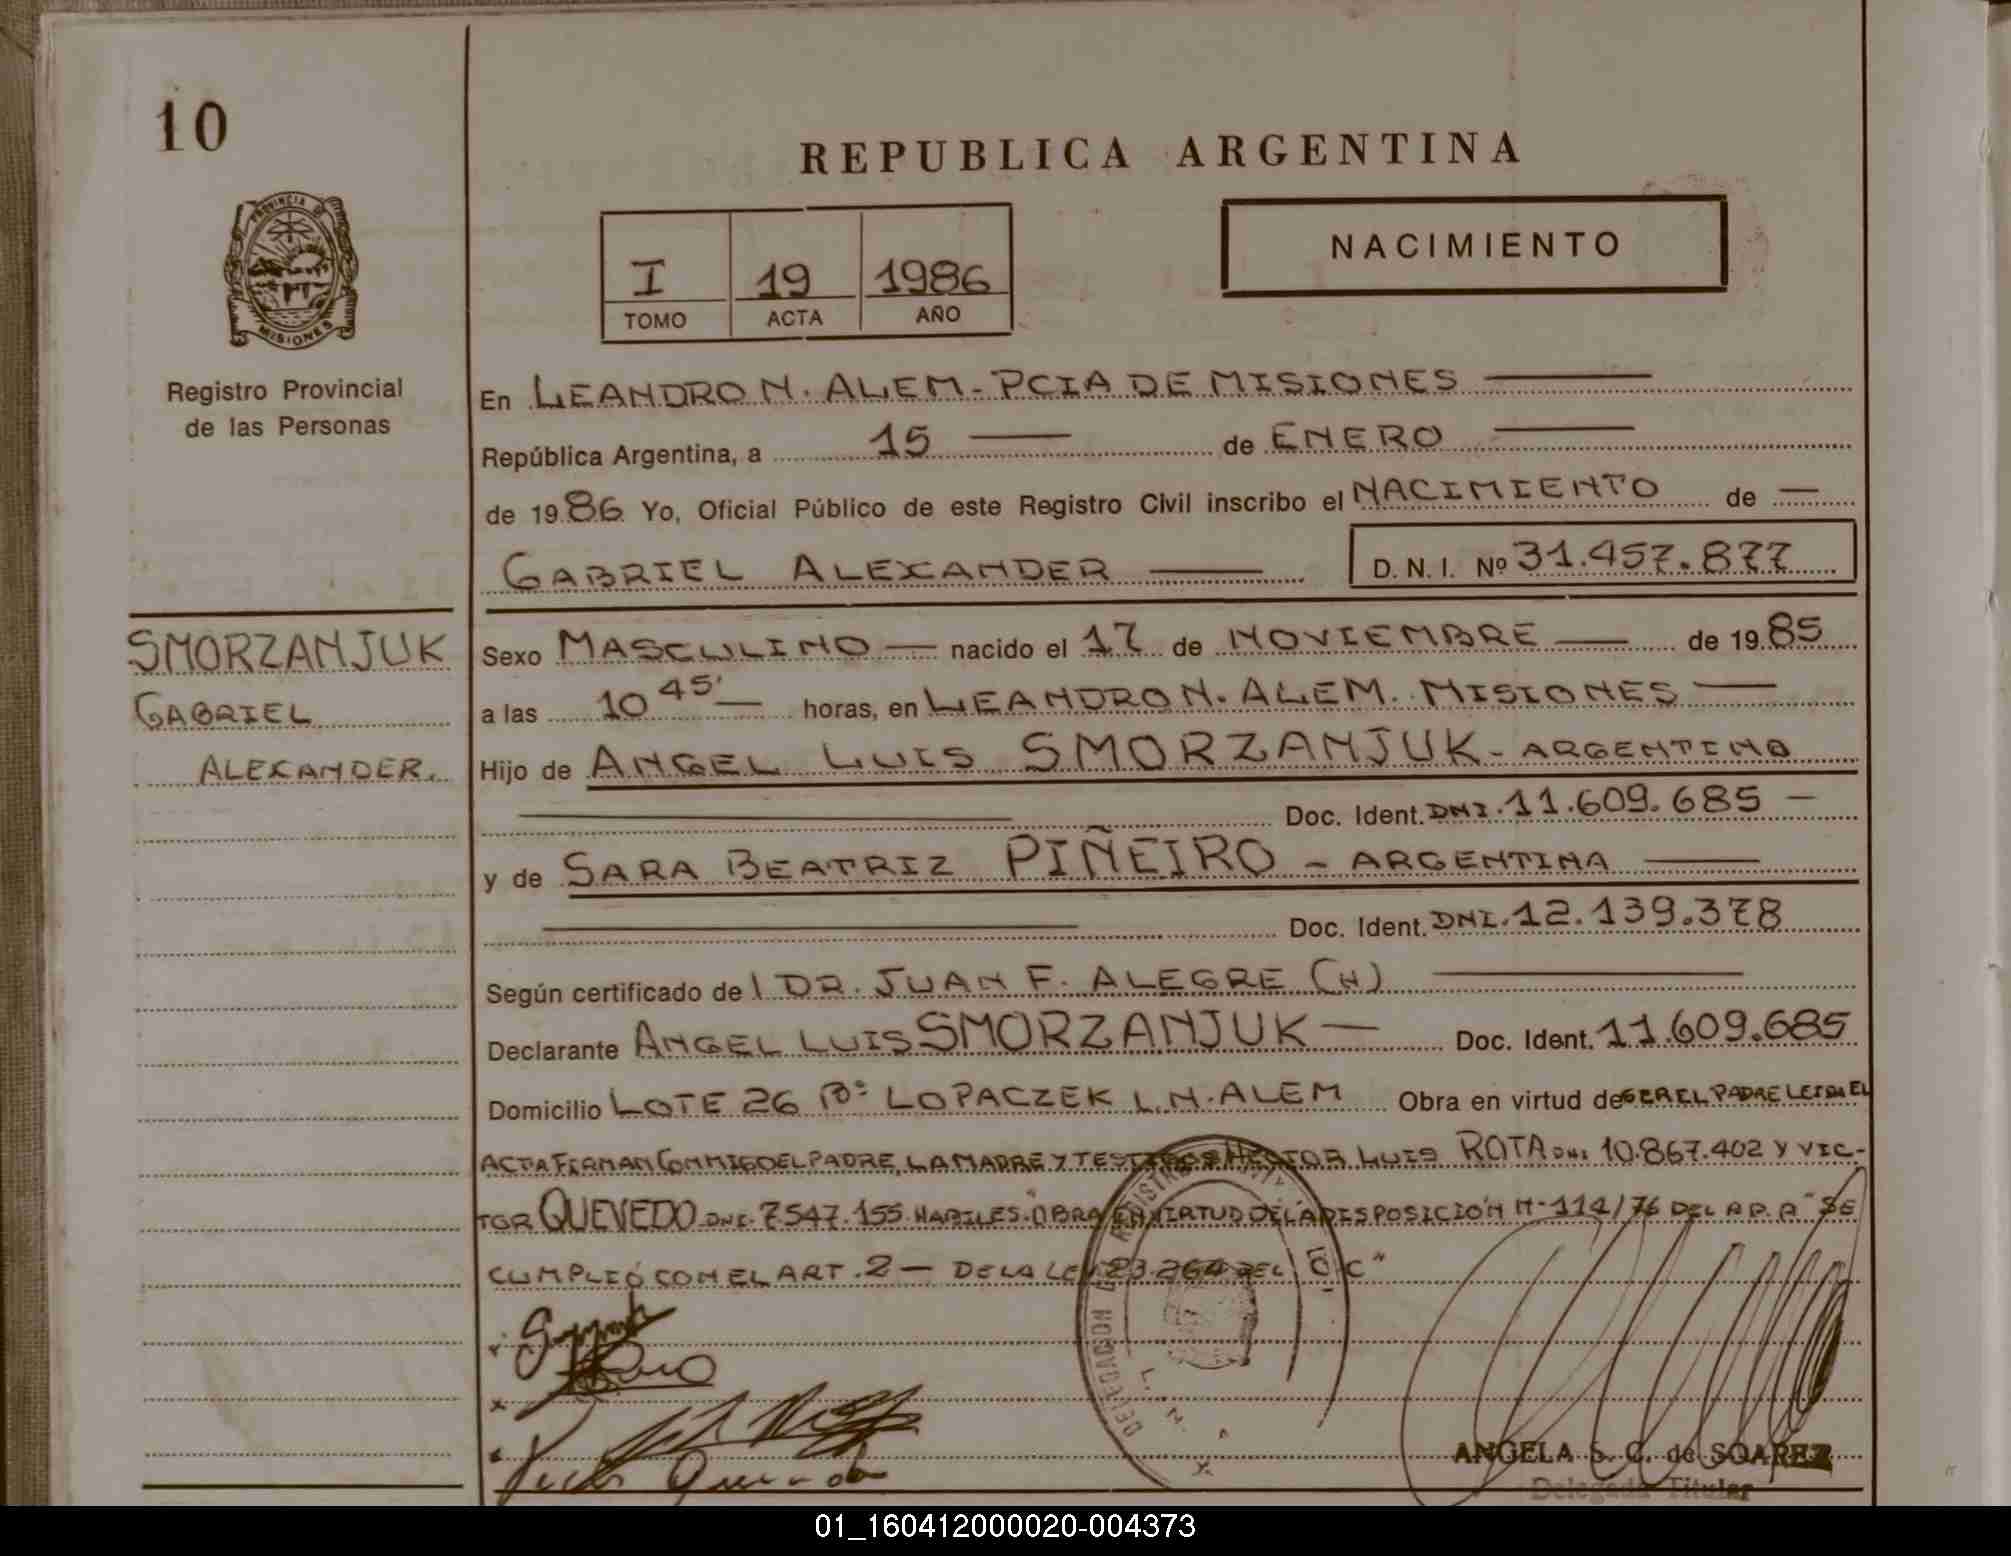 10
REPUBLICA ARGENTINA
NACIMIENTO
I 19 1986
TOMO ACTA AÑO
PROVINCIA DE
MISIONES
Registro Provincial
de las Personas
En LEANDRO N. ALEM - PCIA DE MISIONES
República Argentina, a 15 de ENERO
de 1986 Yo, Oficial Público de este Registro Civil inscribo el NACIMIENTO de
GABRIEL ALEXANDER D. N. I. Nº 31.457.877
SMORZANJUK
GABRIEL
ALEXANDER.
Sexo MASCULINO nacido el 17 de NOVIEMBRE de 1985
a las 10 45' horas, en LEANDRO N. ALEM. MISIONES
Hijo de ANGEL LUIS SMORZANJUK - ARGENTINO
Doc. Ident. DNI. 11.609.685
y de SARA BEATRIZ PIÑEIRO - ARGENTINA
Doc. Ident. DNI. 12.139.378
Según certificado de l DR. JUAN F. ALEGRE (H)
Declarante ANGEL LUIS SMORZANJUK Doc. Ident. 11.609.685
Domicilio LOTE 26 Bº LOPACZEK L.N. ALEM Obra en virtud de SER EL PADRE LEIDA EL
ACTA FIRMAN CONMIGO EL PADRE, LA MADRE Y TESTIGOS HECTOR LUIS ROTA DNI 10.867.402 Y VIC-
TOR QUEVEDO DNI. 7547.155 HABILES. "OBRA EN VIRTUD DE LA DISPOSICIÓN Nº 114/76 DEL R.P.P." "SE
CUMPLIÓ CON EL ART. 2 - DE LA LEY 23.264 DEL C.C"
DELEGACION REGISTRO
L. N.
ANGELA S. C. de SOAREZ
Delegada Titular
01_160412000020-004373